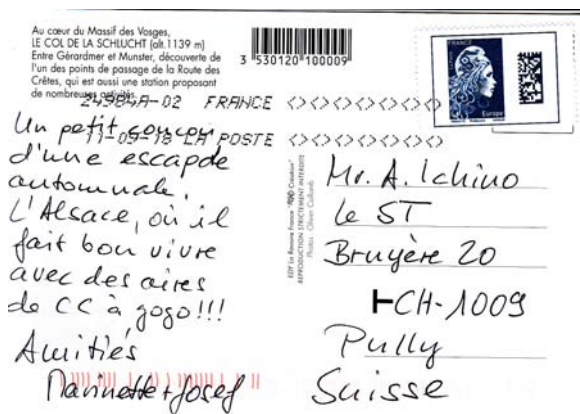 Au cœur du Massif des Vosges,
LE COL DE LA SCHLUCHT (alt.1139 m)
Entre Gérardmer et Munster, découverte de
l'un des points de passage de la Route des
Crêtes, qui est aussi une station proposant
de nombreuses activités.
3 530120 100009
FRANCE
Europe
24984A-02 FRANCE
11-09-18 LA POSTE
Un petit coucou
d'une escapde
automnale.
L'Alsace, où il
fait bon vivre
avec des aires
de CC à gogo!!!
Amitiés
Marinette + Josef
REPRODUCTION STRICTEMENT INTERDITE
Mr. A. Ichino
Le ST
Bruyère 20
CH-1009
Pully
Suisse